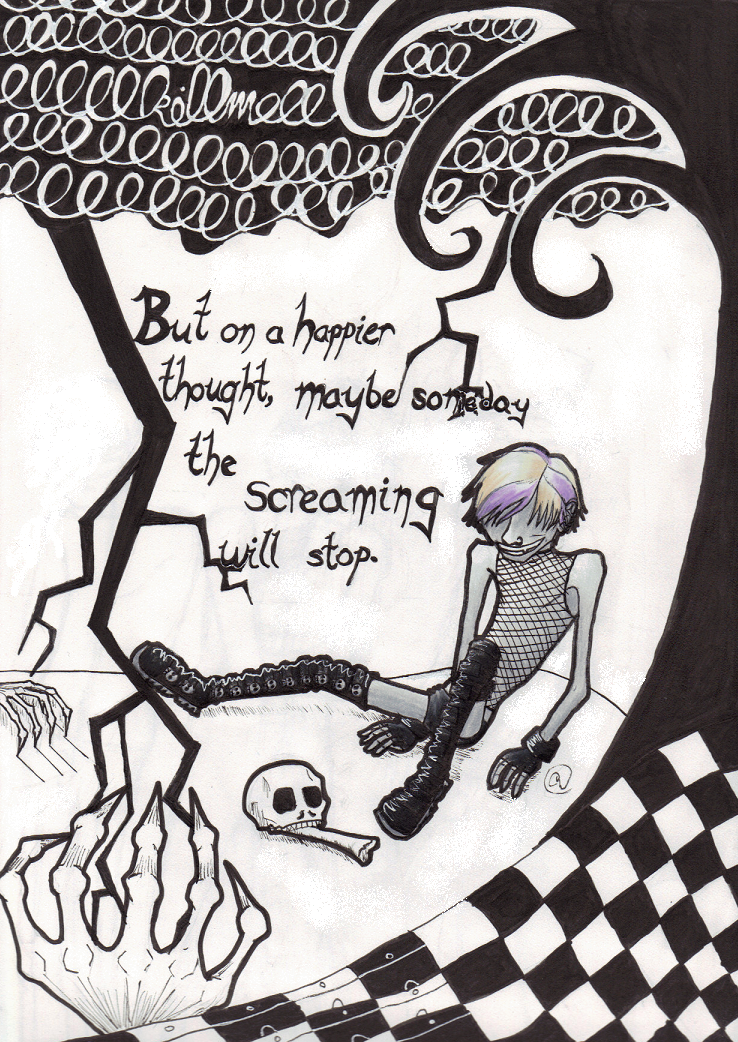 killme
But on a happier
thought, maybe someday
the
screaming
will stop.
a